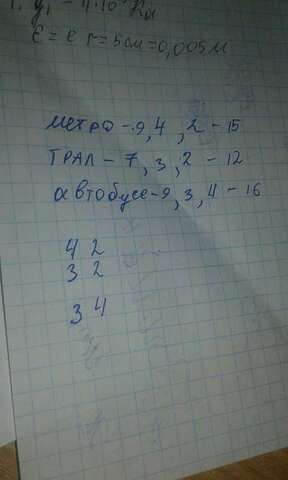 ε = e r = 5см = 0,005м
метро - 9, 4, 2 - 15
трал - 7, 3, 2 - 12
автобусе - 9, 3, 4 - 16
4 2
3 2
3 4